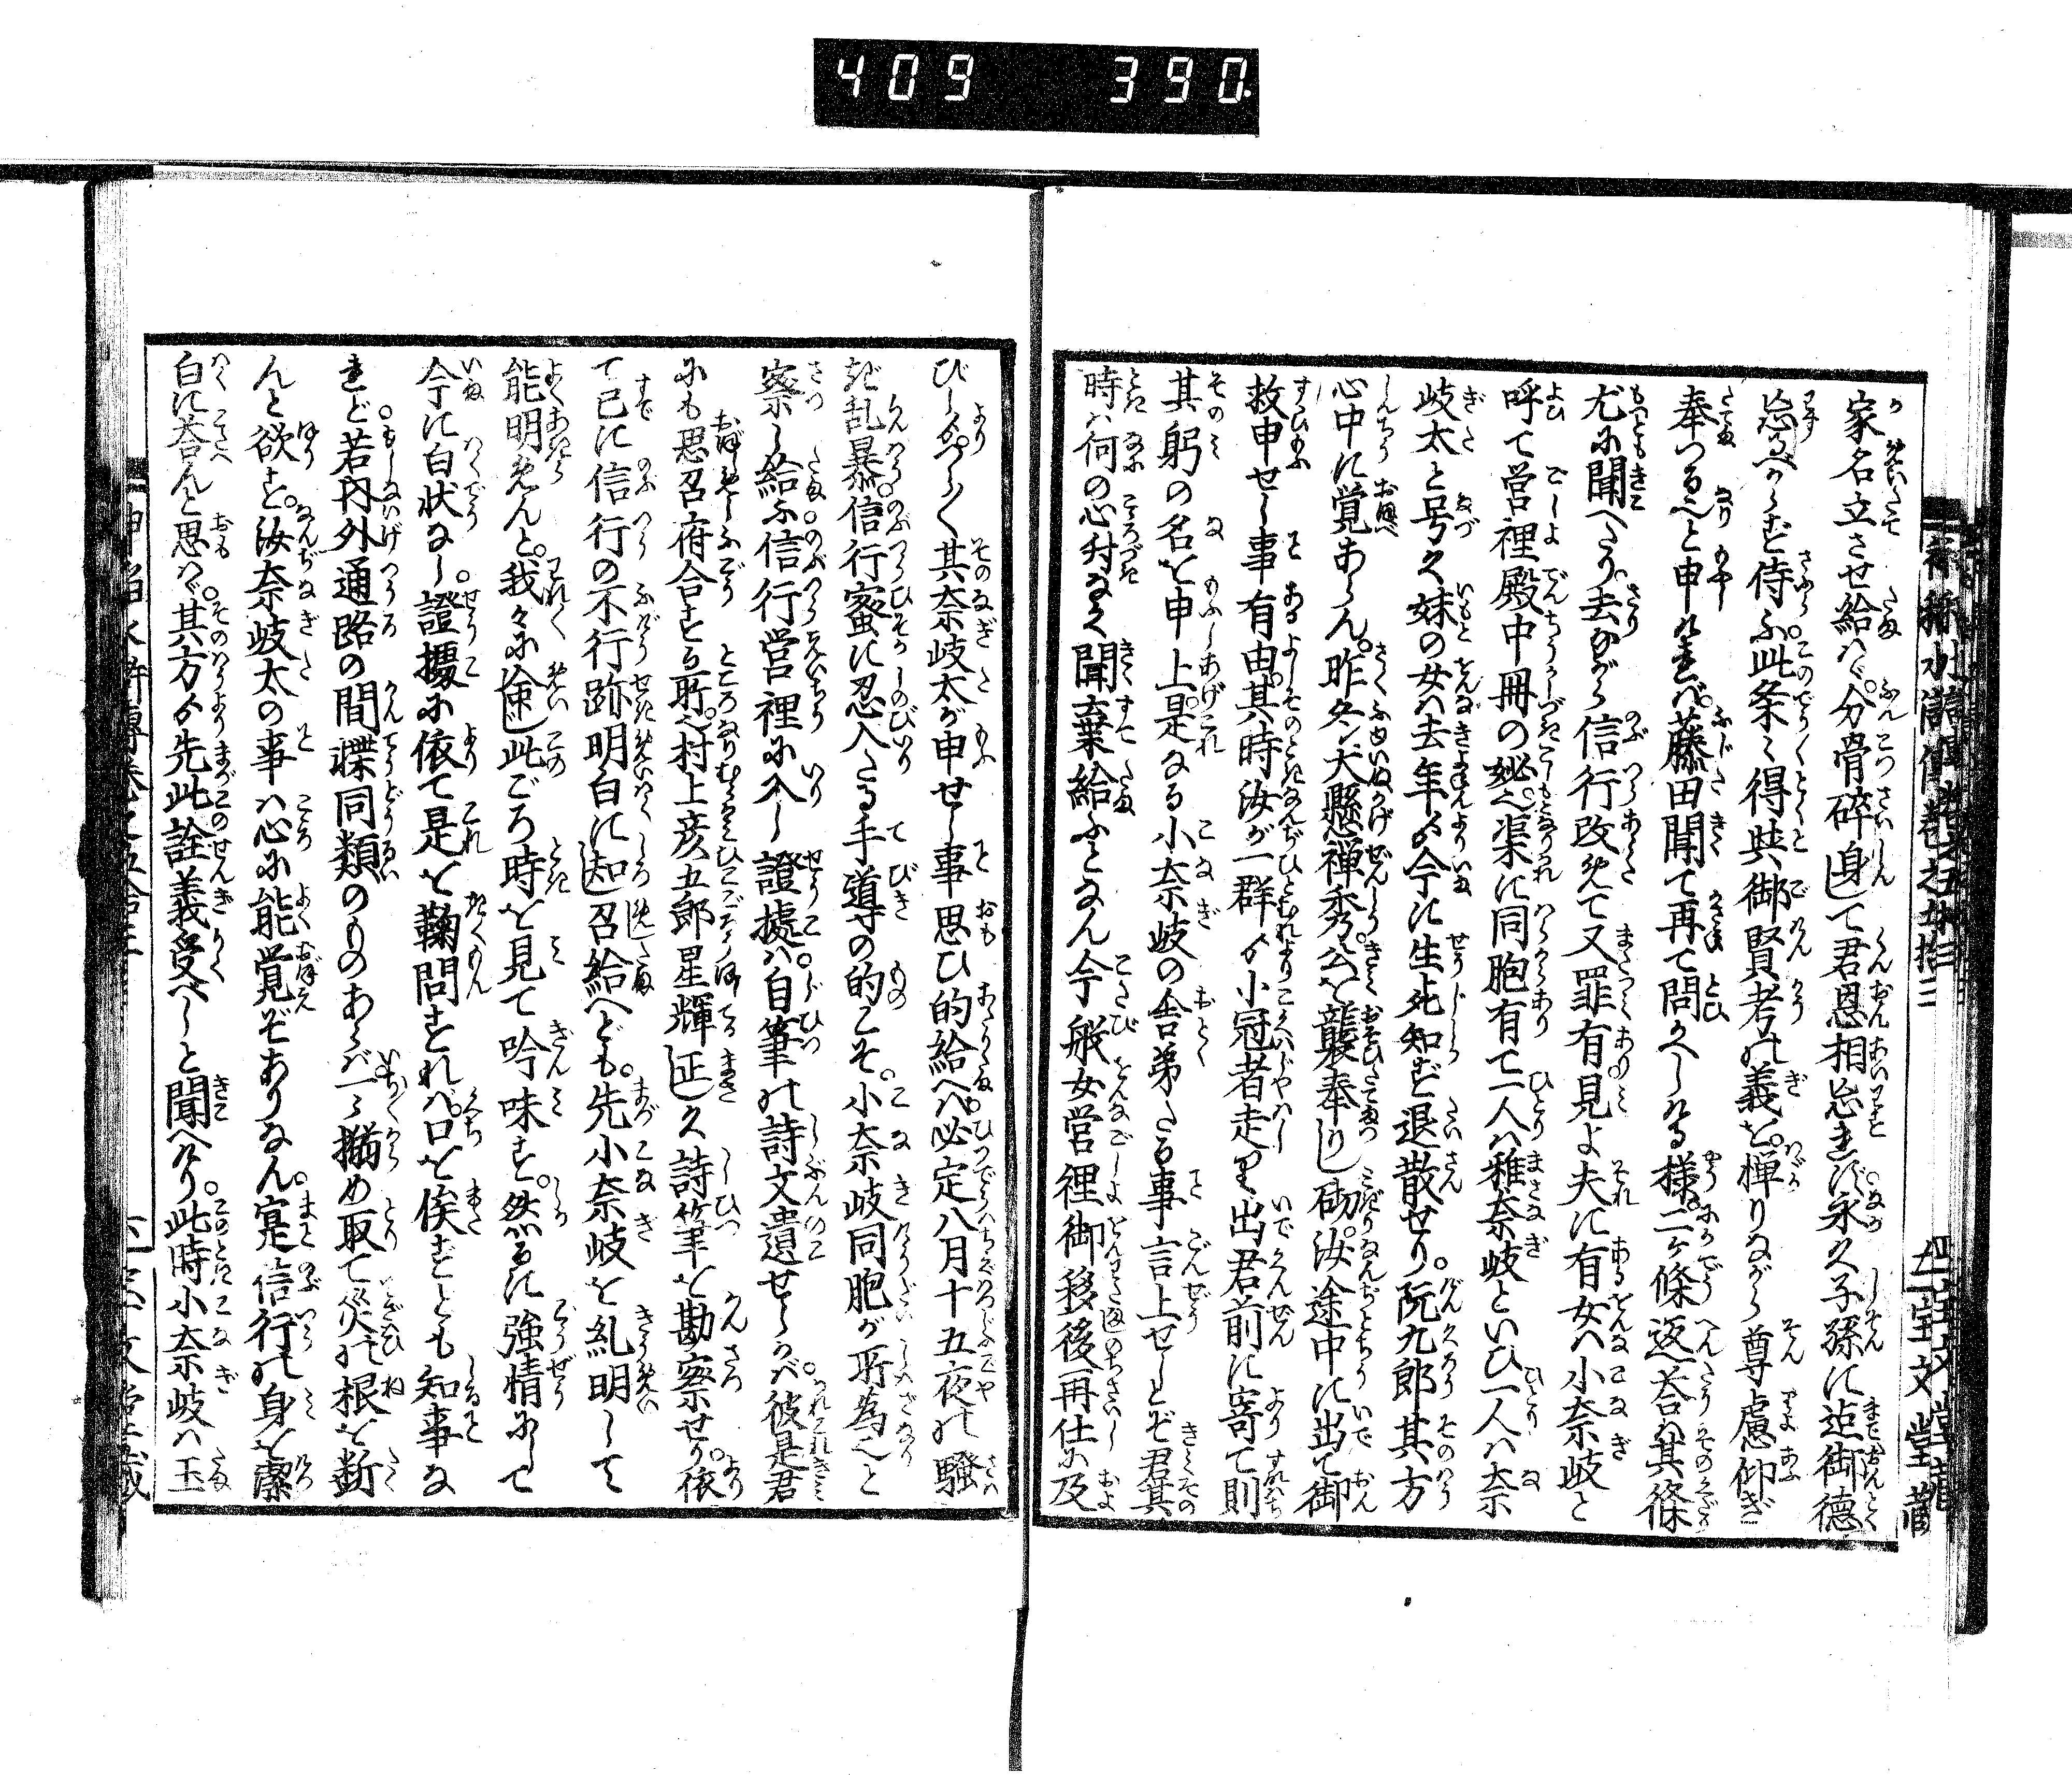 409 390
家名立させ給はゞ分骨碎身して君恩相忘れず永く子孫に迠御德
忘るべからず侍ふ此条々得与御賢考の義を憚りながら尊慮仰ぎ
奉つる也と申ければ藤田聞て再て問かへしける様二ヶ條返答は其條
尤に聞へたり去ながら信行改めて又罪有見よ夫に有女は小奈岐と
呼て営裡殿中冊の婢也渠に同胞有て一人は雅奈岐といひ一人は奈
岐太と号く妹の女は去年より今に生死知ず退散せり阮九郎其方
心中に覚あらん昨冬犬懸禅秀公を襲奉りし砌汝途中に出て御
救申せし事有由其時汝が一群より小冠者走り出君前に寄て則
其躬の名を申上是なる小奈岐の舎弟たる事言上せしとぞ君其
時は何の心付なく聞棄給ふとなん今般女営裡御移後再仕に及
びしかやしく其奈岐太が申せし事思ひ的給へ必定八月十五夜の騒
動乱暴信行蜜に忍入たる手導の的こそ小奈岐同胞が所為也と
察し給ふ信行営裡に入し證據は自筆の詩文遺せしかば彼是君
にも思召府合する所也村上彦五郎星輝正く詩筆を勘察せり依
て已に信行の不行跡明白に知召給へども先小奈岐を糺明して
能明めんと我々に命じ此ごろ時を見て吟味す然るに強情にして
今に白状なし證拠に依て是を鞠問すれば口を俟すとも知事な
れど若内外通路の間諜同類のものあらば一々搦め取て災の根を断
んと欲す汝奈岐太の事は心に能覚ぞありなん寔信行の身を潔
白に荅んと思はゞ其方より先此詮義受べしと聞へけり此時小奈岐は玉